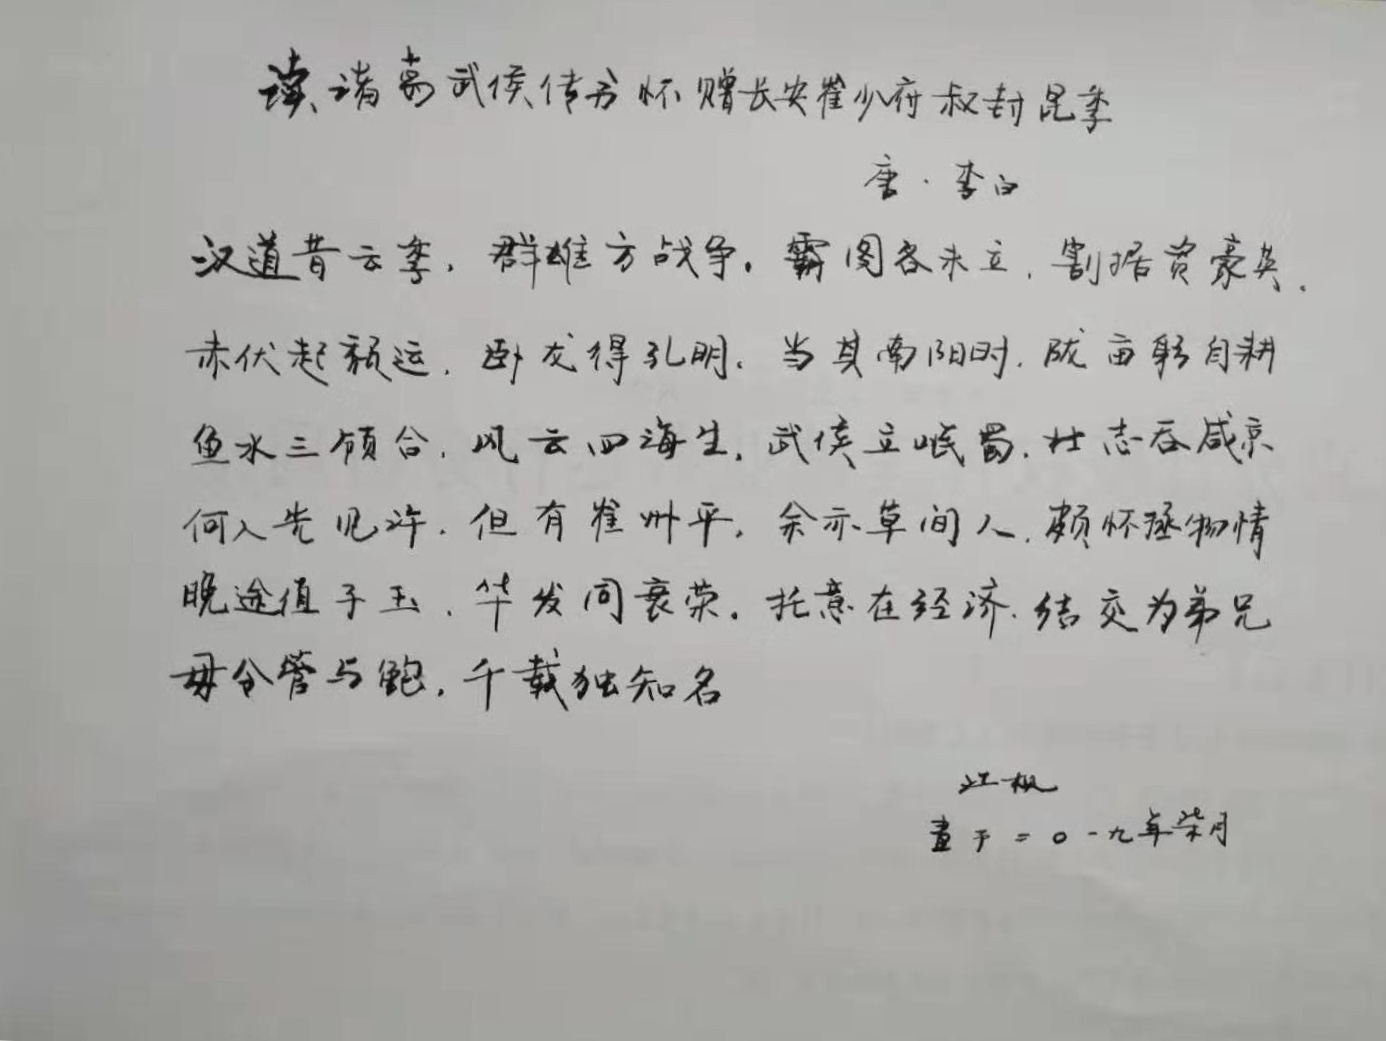 读诸葛武侯传书怀赠长安崔少府叔封昆季
唐·李白
汉道昔云季，群雄方战争。霸图各未立，割据资豪英。
赤伏起颓运，卧龙得孔明。当其南阳时，陇亩躬自耕
鱼水三顾合，风云四海生。武侯立岷蜀，壮志吞咸京
何人先见许，但有崔州平。余亦草间人，颇怀拯物情
晚途值子玉，华发同衰荣。托意在经济，结交为弟兄
毋令管与鲍，千载独知名
书于二〇一九年柒月